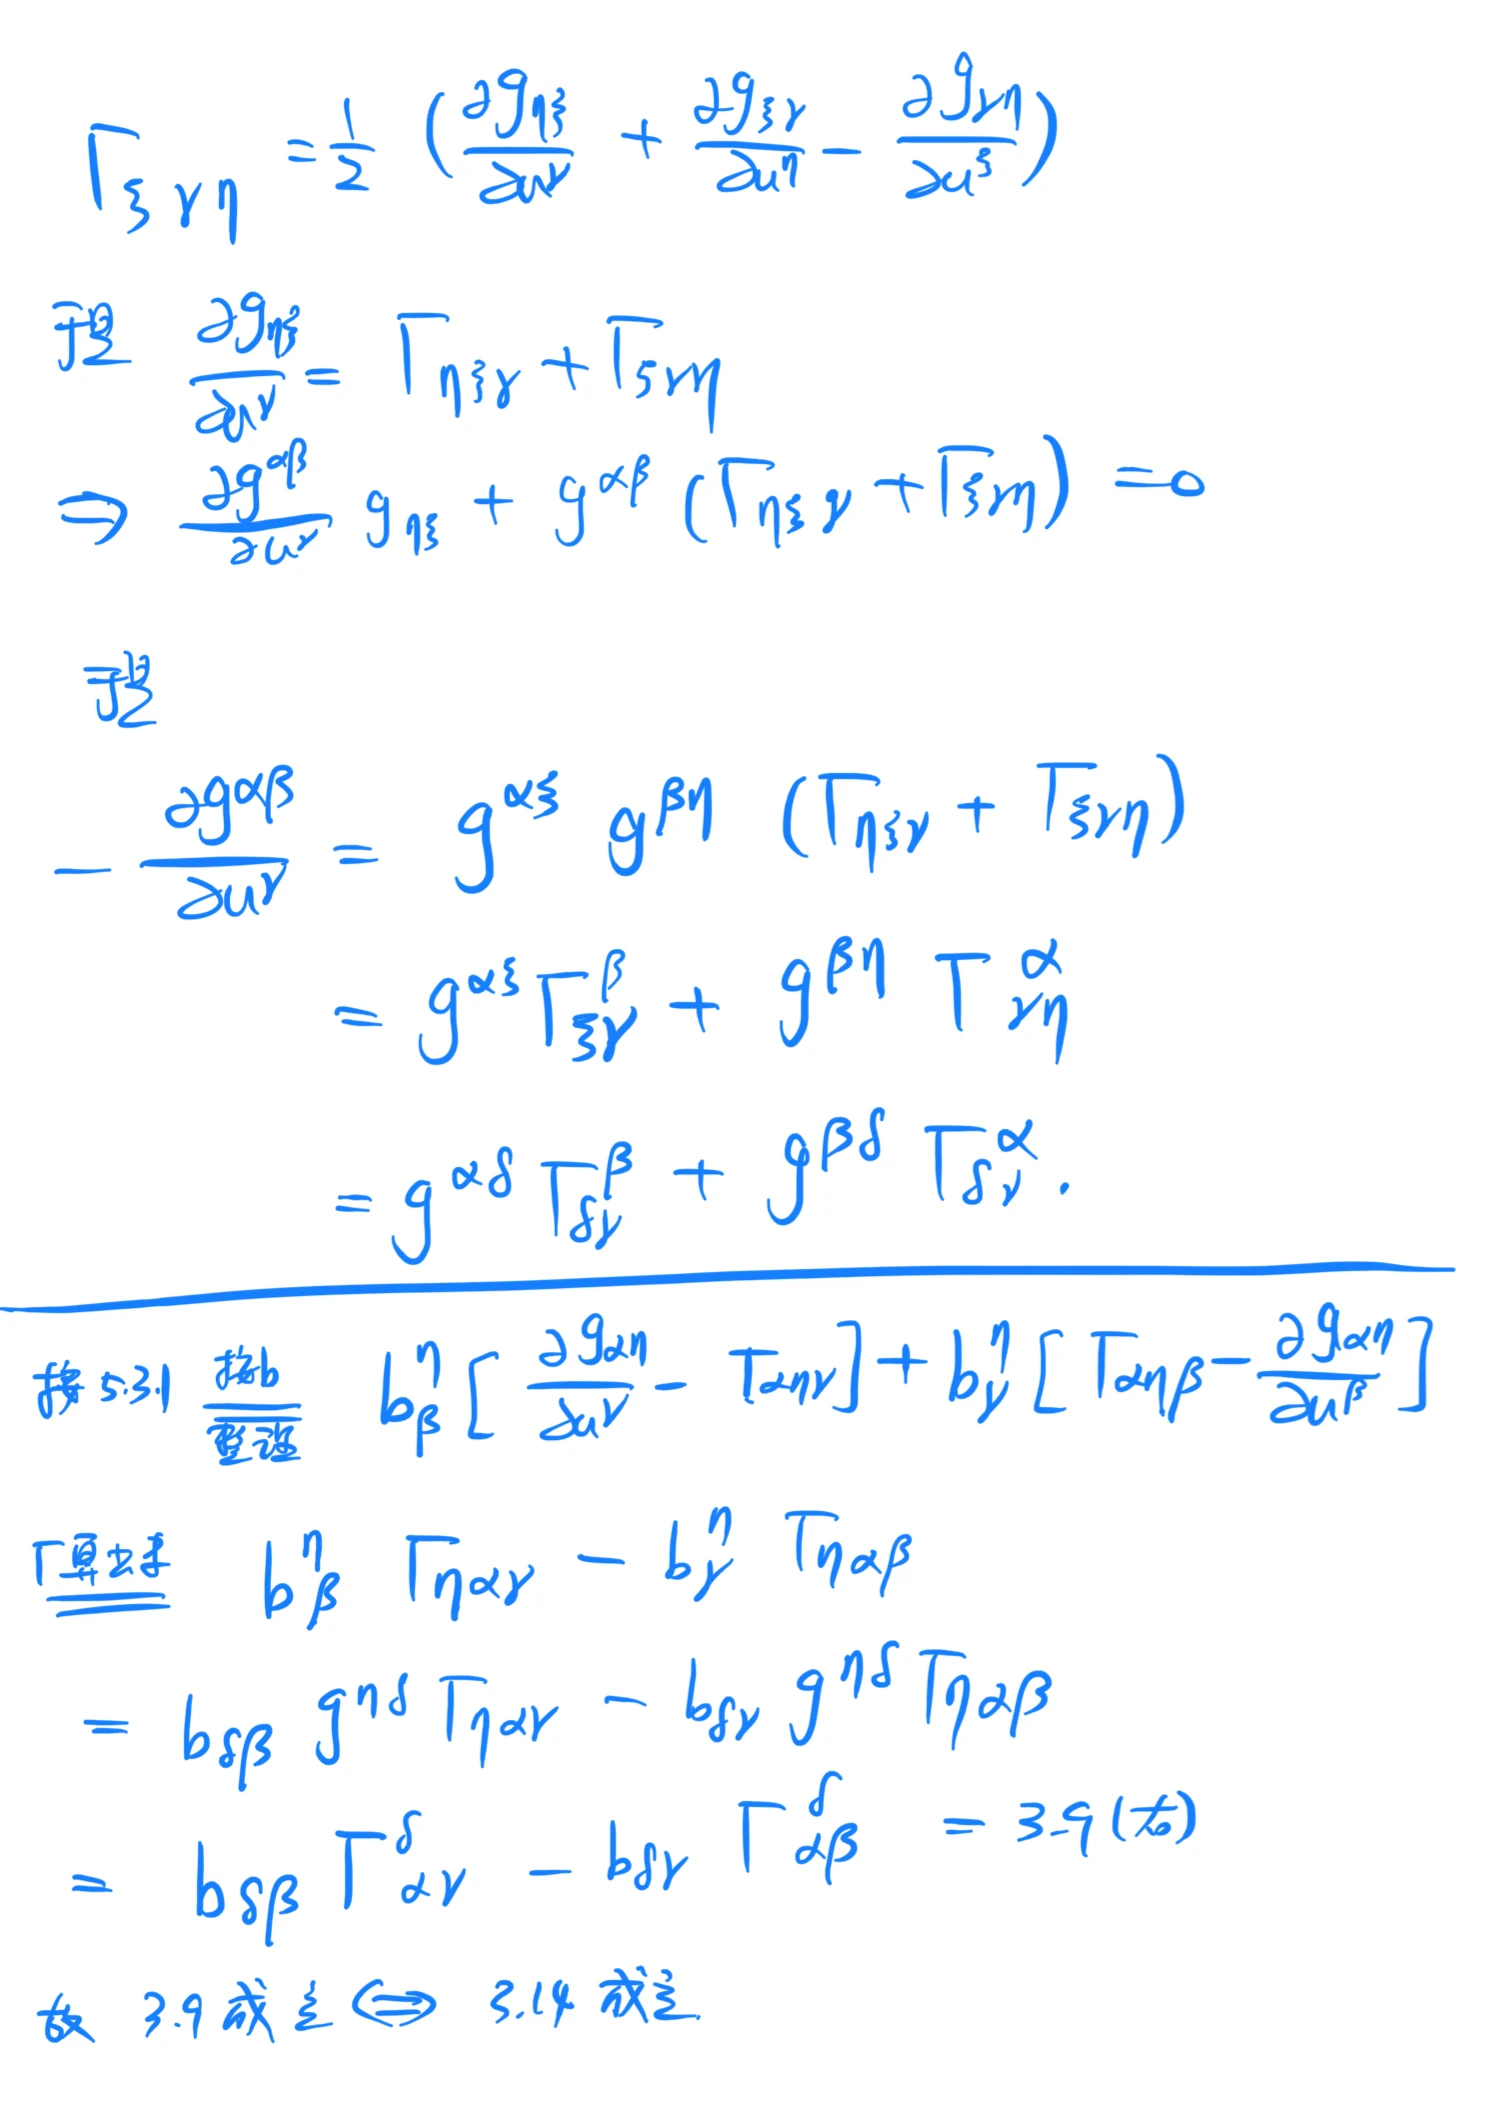 Γ_{ξγη} = 1/2 (∂g_{ηξ}/∂u^γ + ∂g_{ξγ}/∂u^η - ∂g_{γη}/∂u^ξ)
于是 ∂g_{ηξ}/∂u^γ = Γ_{ηξγ} + Γ_{ξγη}
⇒ ∂g^{αβ}/∂u^γ g_{ηξ} + g^{αβ} (Γ_{ηξγ} + Γ_{ξγη}) = 0
于是
- ∂g^{αβ}/∂u^γ = g^{αξ} g^{βη} (Γ_{ηξγ} + Γ_{ξγη})
= g^{αξ} Γ^β_{ξγ} + g^{βη} Γ^α_{γη}
= g^{αδ} Γ^β_{δγ} + g^{βδ} Γ^α_{δγ}.
接 5.3.1 按b整理 b^η_β [∂g_{αη}/∂u^γ - Γ_{αηγ}] + b^η_γ [Γ_{αηβ} - ∂g_{αη}/∂u^β]
Γ算出来 b^η_β Γ_{ηαγ} - b^η_γ Γ_{ηαβ}
= b_{δβ} g^{ηδ} Γ_{ηαγ} - b_{δγ} g^{ηδ} Γ_{ηαβ}
= b_{δβ} Γ^δ_{αγ} - b_{δγ} Γ^δ_{αβ} = 3.9 (右)
故 3.9 成立 ⇔ 3.14 成立.